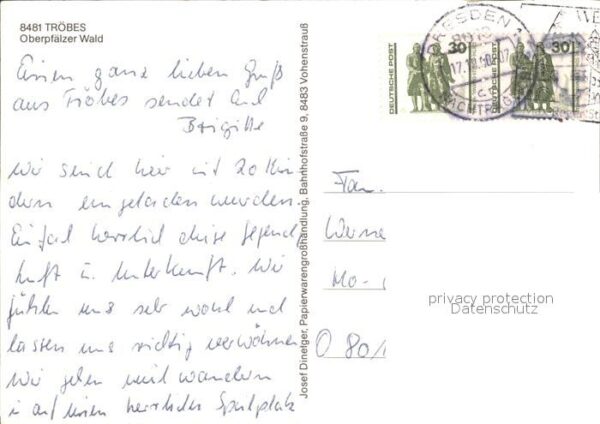 8481 TRÖBES
Oberpfälzer Wald
Einen ganz lieben Gruß
aus Tröbes sendet Euch
Brigitte
Wir sind hier mit 20 Kin
dern eingeladen worden.
Einfach herrlich diese Gegend,
Luft u. Unterkunft. Wir
fühlen uns sehr wohl und
lassen uns richtig verwöhnen
Wir gehen viel wandern
auf einen herrlichen Spielplatz
Josef Dinelger, Papierwarengroßhandlung, Bahnhofstraße 9, 8483 Vohenstrauß
DEUTSCHE POST 30
DEUTSCHE POST 30
DRESDEN
8010
Fam.
Werne
Mo-
O 80/1
privacy protection
Datenschutz